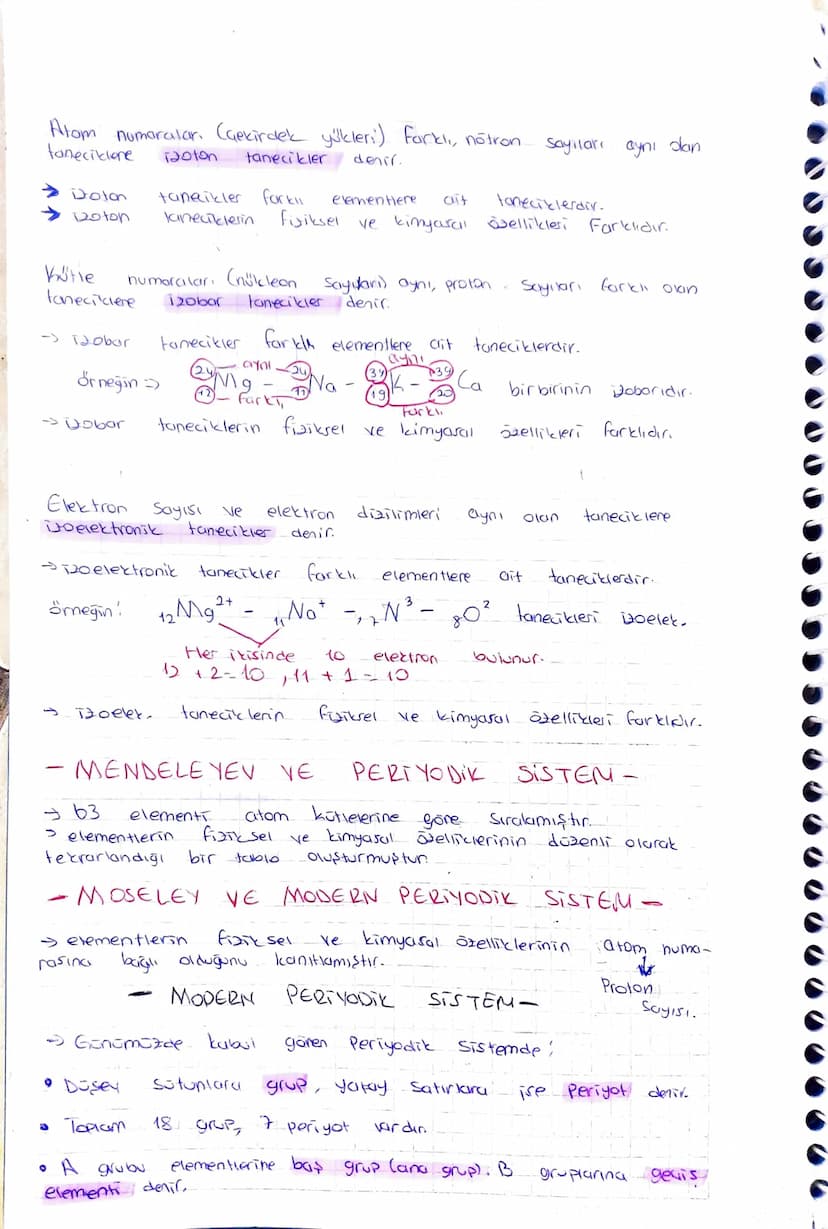 Atom numaraları (çekirdek yükleri) farklı, nötron sayıları aynı olan
taneciklere izoton tanecikler denir.
→ izoton tanecikler farklı elementlere ait taneciklerdir.
→ izoton taneciklerin fiziksel ve kimyasal özellikleri farklıdır.
Kütle numaraları (nükleon sayıları) aynı, proton sayıları farklı olan
taneciklere izobar tanecikler denir.
→ izobar tanecikler farklı elementlere ait taneciklerdir.
24 aynı 24 39 aynı 39
örneğin => Mg - Na - K - Ca birbirinin izobarıdır.
12 farklı 11 19 farklı 20
→ izobar taneciklerin fiziksel ve kimyasal özellikleri farklıdır.
Elektron sayısı ve elektron dizilimleri aynı olan taneciklere
izoelektronik tanecikler denir.
→ izoelektronik tanecikler farklı elementlere ait taneciklerdir.
örneğin! ₁₂Mg²⁺ - ₁₁Na⁺ -, ₇N³ - ₈O² tanecikleri izoelek.
Her ikisinde 10 elektron bulunur.
12 + 2 = 10 , 11 + 1 = 10
→ izoelek. taneciklerin fiziksel ve kimyasal özellikleri farklıdır.
- MENDELEYEV VE PERİYODİK SİSTEM -
→ 63 elementi atom kütlelerine göre sıralamıştır.
→ elementlerin fiziksel ve kimyasal özelliklerinin düzenli olarak
tekrarlandığı bir tablo oluşturmuştur.
- MOSELEY VE MODERN PERİYODİK SİSTEM -
→ elementlerin fiziksel ve kimyasal özelliklerinin atom numa-
rasına bağlı olduğunu kanıtlamıştır.
Proton
Sayısı.
- MODERN PERİYODİK SİSTEM -
→ Günümüzde kabul gören Periyodik Sistemde;
• Düşey sütunlara grup, yatay satırlara ise periyot denir.
• Toplam 18 grup, 7 periyot vardır.
• A grubu elementlerine baş grup (ana grup). B gruplarına geçiş
elementi denir.